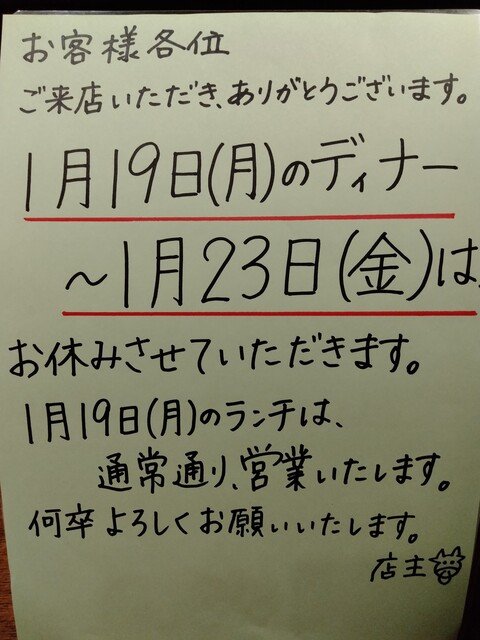 お客様各位
ご来店いただき、ありがとうございます。
1月19日(月)のディナー
～1月23日(金)は、
お休みさせていただきます。
1月19日(月)のランチは、
通常通り、営業いたします。
何卒よろしくお願いいたします。
店主